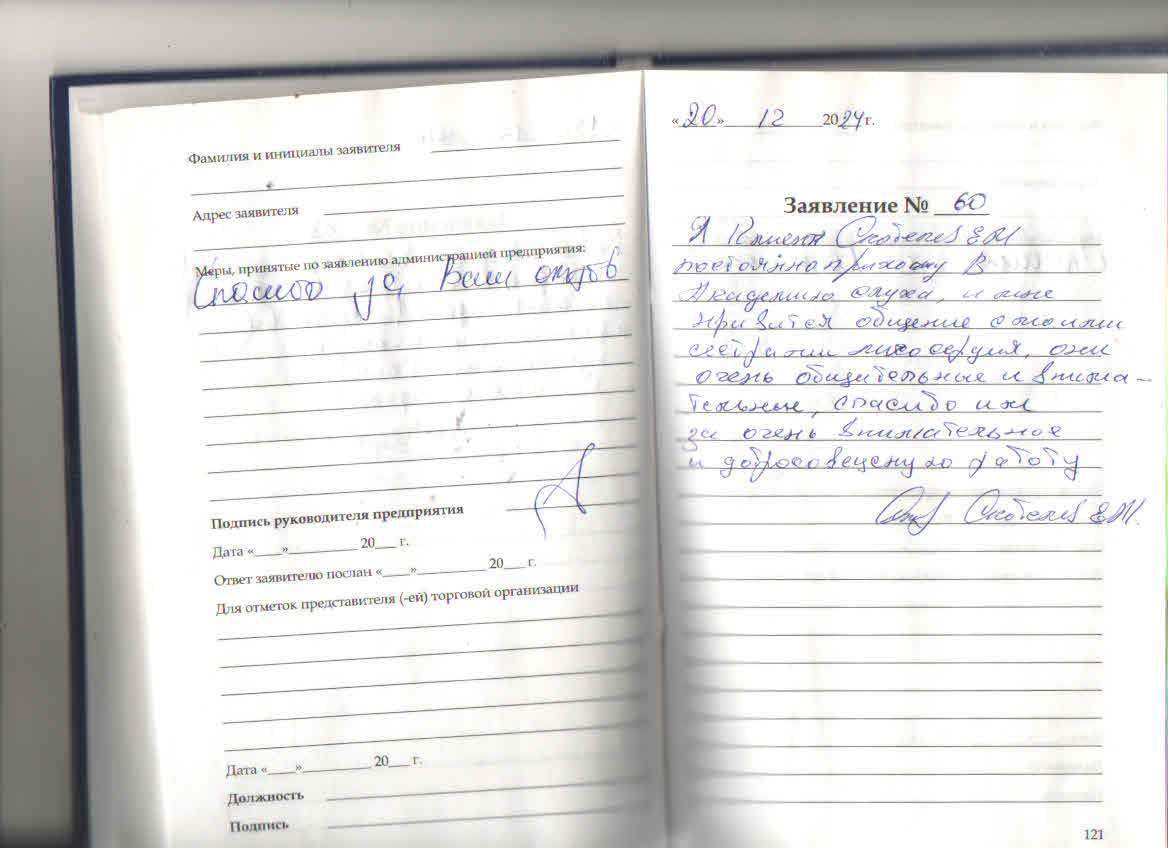 Фамилия и инициалы заявителя
Адрес заявителя
Меры, принятые по заявлению администрацией предприятия:
Спасибо за Ваш отзыв
Подпись руководителя предприятия
Дата «___»__________ 20___ г.
Ответ заявителю послан «___»__________ 20___ г.
Для отметок представителя (-ей) торговой организации
Дата «___»__________ 20___ г.
Должность
Подпись
«20» 12 2024 г.
Заявление № 60
Я Клиент Скобелев Е М
постоянно прихожу в
Академию слуха, и мне
нравится общение с
сестрами милосердия, они
очень общительные и внима-
тельные, спасибо им
за очень внимательное
и добросовесную работу
Скобелев Е.М.
121